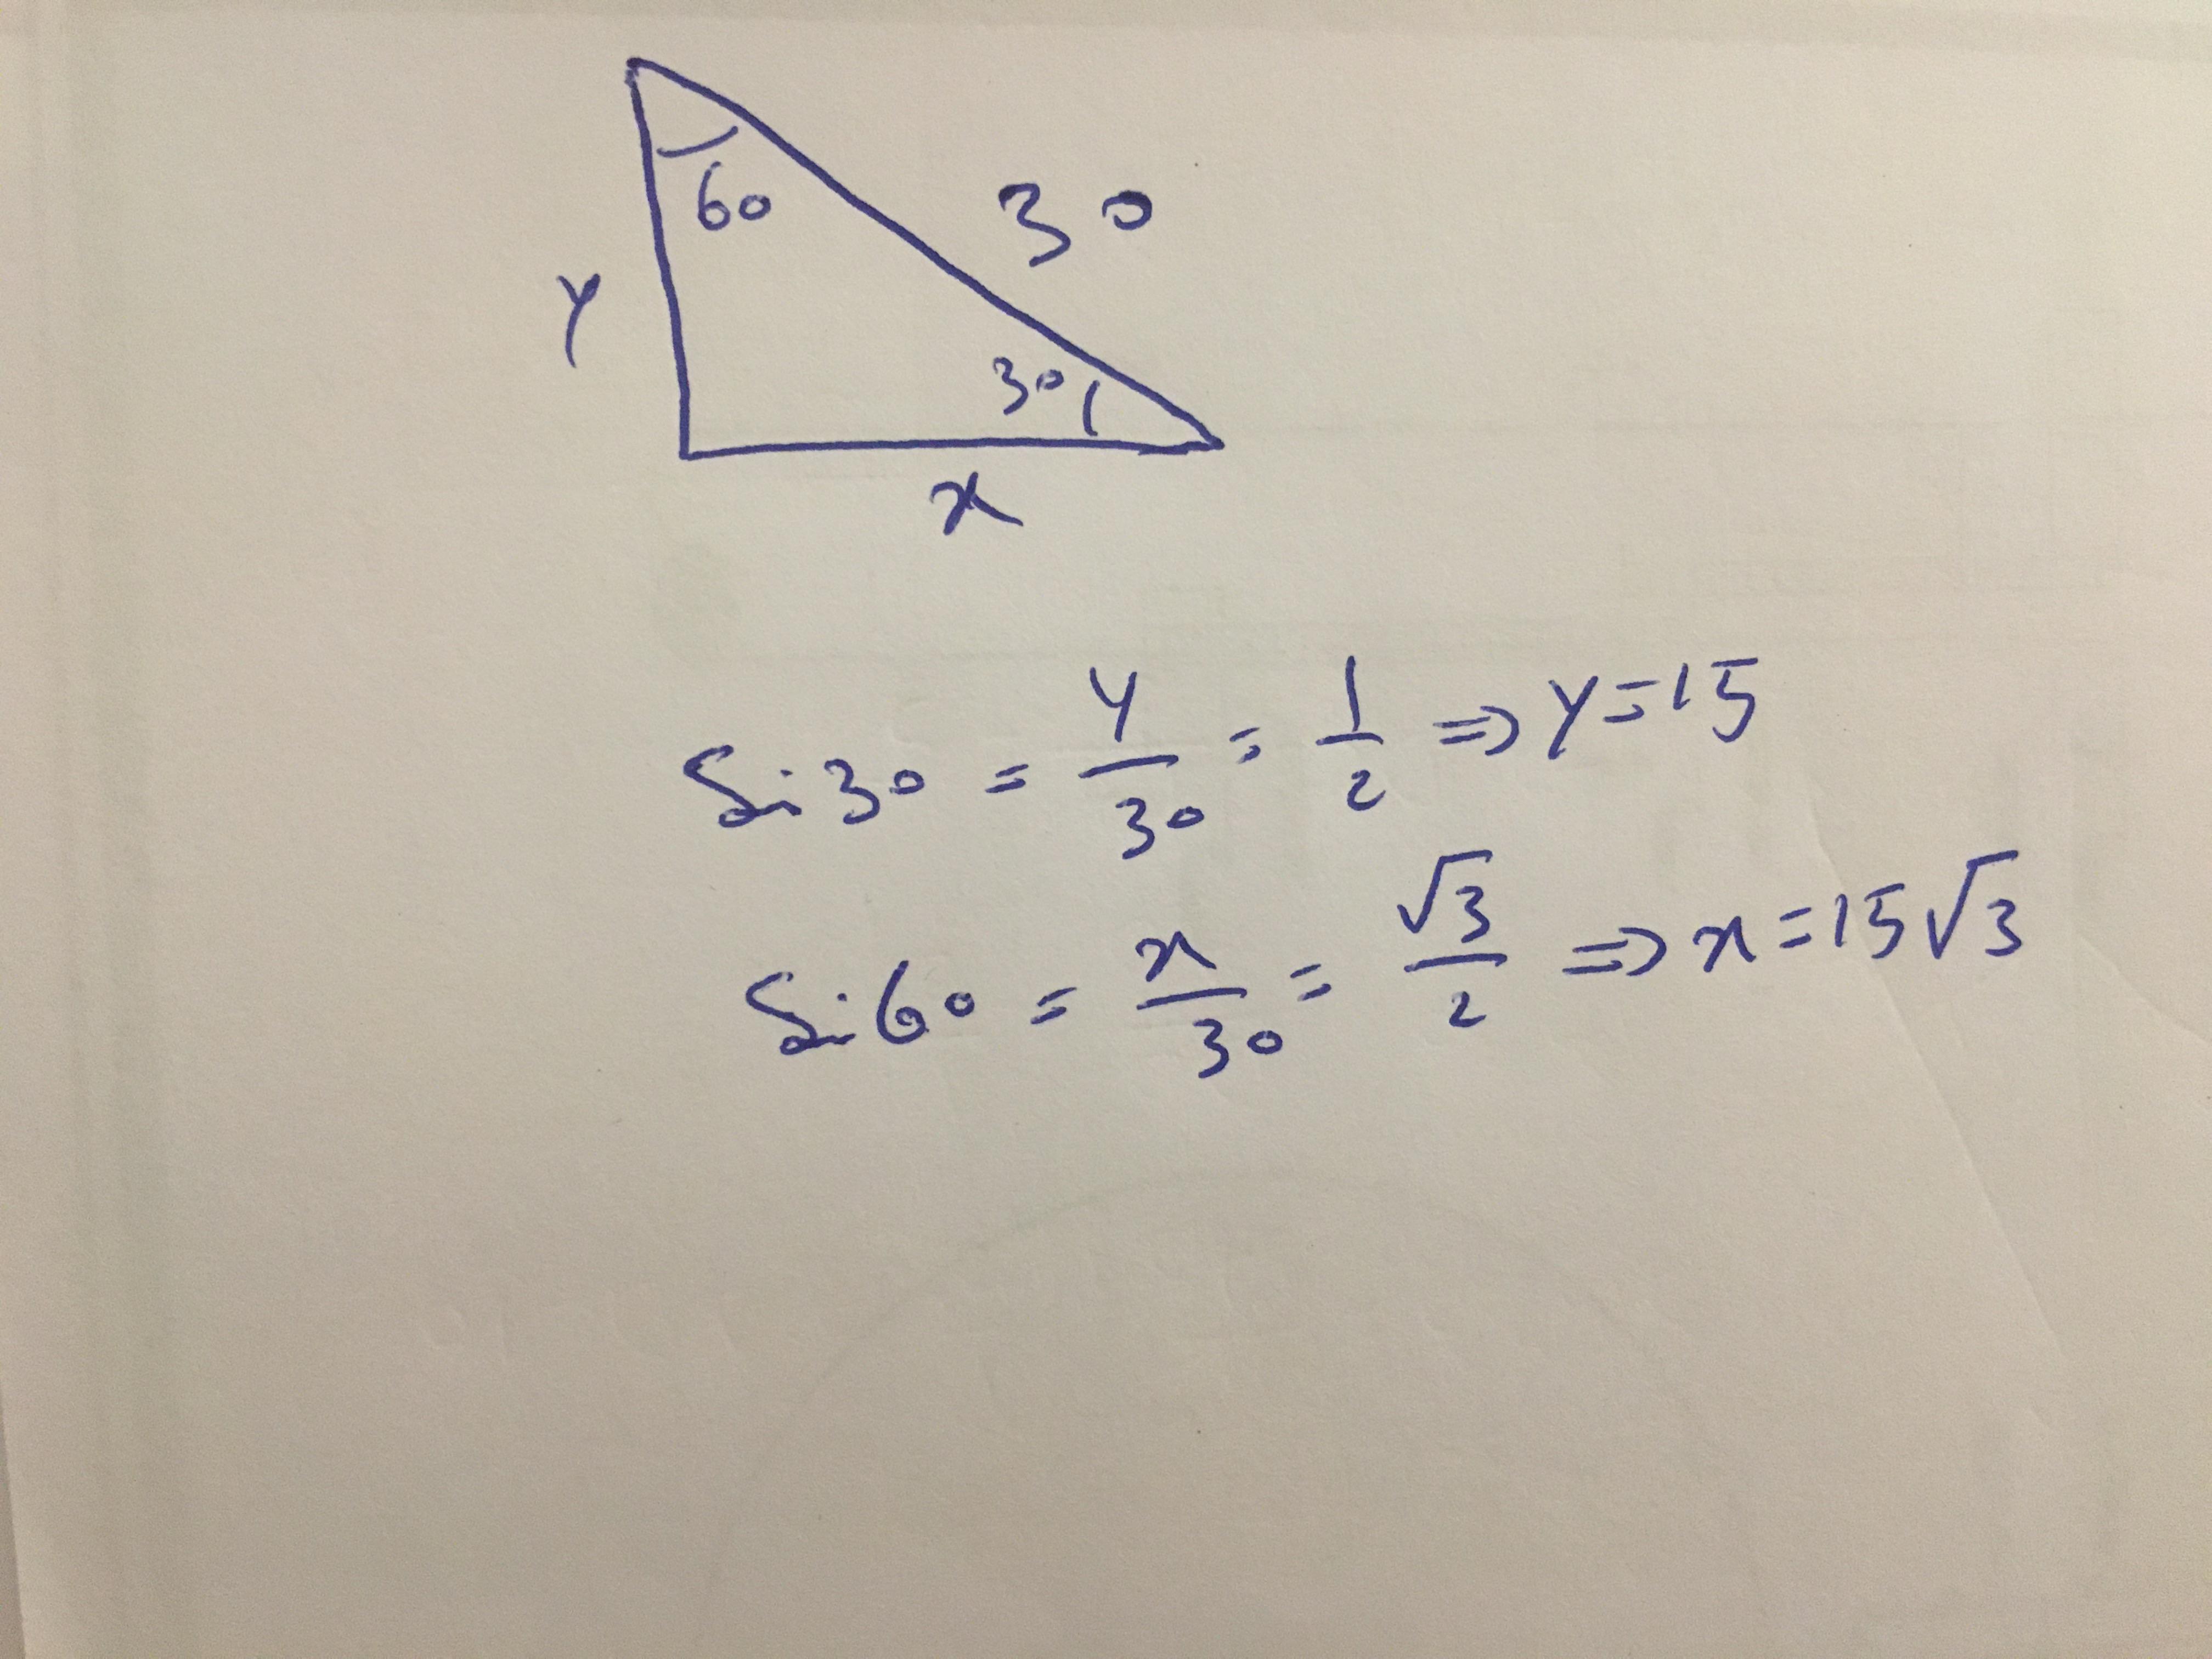 60
30
y
30
x
Sin 30 = y/30 = 1/2 ⇒ y = 15
Sin 60 = x/30 = √3/2 ⇒ x = 15√3